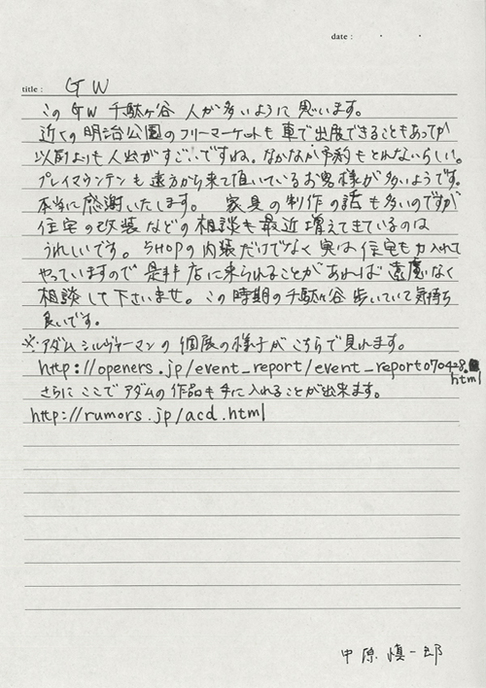 date : ・ ・
title : GW
この GW 千駄ヶ谷 人が多いように思います。
近くの明治公園のフリーマーケットも車で出展できることもあってか
以前よりも人出がすごいですね。なかなか予約もとれないらしい。
プレイマウンテンも遠方から来て頂いているお客様が多いようです。
本当に感謝いたします。 家具の制作の話も多いのですが
住宅の改装などの相談も最近増えてきているのは
うれしいです。SHOPの内装だけでなく実は住宅も力入れて
やっていますので是非店に来られることがあれば遠慮なく
相談して下さいませ。この時期の千駄ヶ谷歩いていて気持ち
良いです。
※アダムシルヴァーマンの個展の様子がこちらで見れます。
http://openers.jp/event_report/event_report070428.
html
さらにここでアダムの作品も手に入れることが出来ます。
http://rumors.jp/acd.html
中原慎一郎